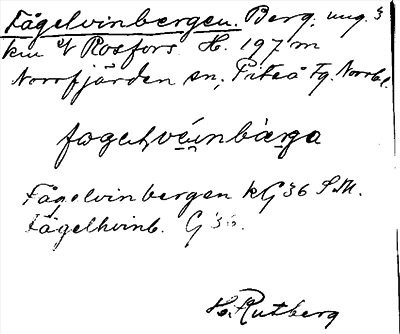 Fågelvinbergen. Berg. ung. 3
km V Rosfors. H. 197 m
Norrfjärden sn, Piteå Fg. Norrb.l.
Fågelvinbergen kG36 S.M.
Fågelhvinb. G 36.
H. Rutberg